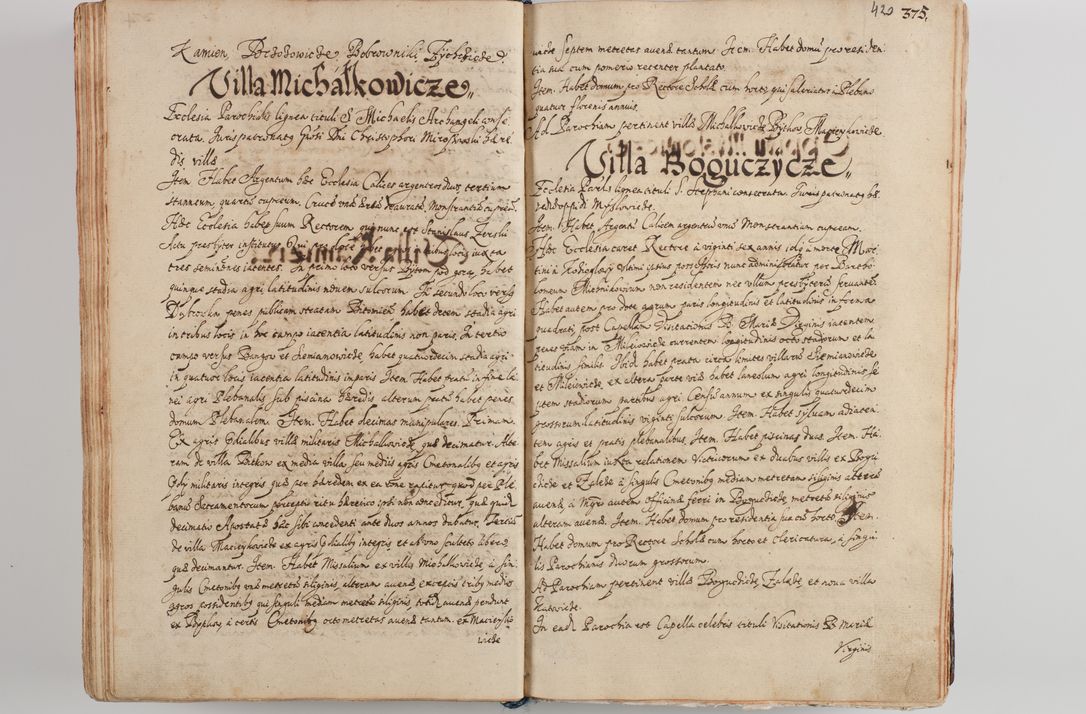 Kamien, Dobrowicze, Bobrowniki, Psychiede
Villa Michałkowicze,,
Ecclesia Parochialis lignea tituli S. Michaelis Archangeli conse
crata. Juris patronatus Dni Christophori Mirowski hære
dis villæ
Item Habet Argentum hæc Ecclesia Calices argenteos duos, tertium
stanneum, quartū cupreum, Crucē unā deauratā, Monstrantiā cupreā.
Hæc Ecclesia habet suum Rectorem qui nunc est Stanislaus Zerski
presbyter institutus. Qui pro dote habet iuxta
tres seminones iacentes. In primo loco versus Bytom pod gorą, habet
quinque stadia agri latitudinis novem sulcorum. In secundo loco versus
Dąbrowkā penes publicam stratam Bitomien: habet decem stadia agri
in tribus locis in hoc campo iacentia latitudinis non paris. In tertio
campo versus Bangow et Siemianowicze habet quatuordecim stadia agri
in quatuor locis iacentia latitudinis imparis Item Habet pratū in fine la
nei agri Plebanalis sub piscina hæredis alterum pratū habet penes
domum Plebanalem. Item. Habet decimas manipulares. Primam.
Ex agris Cmetalibus villæ militaris Michalkowicze, quæ decimatur. Alte
ram de villa Bitkow ex media villa seu mediis agris Cmetonalibus et agris
militaris integris quæ per hæredem ex ea rapitur, quod per Ple
banū Sacramentorum perceptio ritu hæretico ipsi non conceditur, quæ quid
decimatio Apostatæ hac sibi concedenti ante duos annos dabatur, Tertiā
de villa Macieykowicze ex agris Cmetalibus integris et ab uno sculteto libero
quæ decimantur. Item. Habet Missalium ex villis Michalkowicze à sin
gulis Cmetonibus unā metretā siliginis, alteram avenæ, exceptis tribus mediis
agros possidentibus qui singuli mediam metretā siliginis, totidē avenæ pendunt
ex Bytkow, à certis Cmetonibus octo metretas avenæ tantum. ex Macieyko
wicze
420 375,
septem metretas avenæ tantum Item. Habet domū pro residen
tia sua cum pomerio recenter plantato.
Item. Habet domum pro Rectore Scholæ cum horto, qui salariatur à Plebano
quatuor florenis annuis.
Ad Parochiam pertinent villæ Michalkowicze Bytkow Macieykowicze.
Villa Boguczycze,,
Ecclesia Parlis lignea tituli S. Stephani consecrata. Juris patronatus hæ
redū oppidi Myslowicze.
Item. Habet Argenti Calicem argenteū unū Monstrantiam cupream.
Hæc Ecclesia caret Rectore à viginti sex annis, idq; à morte Mar
tini à Kosieglowy ultimi istius possessoris nunc administratur per Bartho
lomeum Miernikowium non residentem nec ullum presbyterū servantē.
Habet autem pro dote agrum paris longitudinis et latitudinis in forma
quadrati, post Capellam Visitationis B. Mariæ Virginis iacentem.
penes viam in Milewicze currentem longitudinis octo stadiorum et la
titudinis similis. Ibid. habet prata circa limites villarū Siemianowicze
et Mileiowicze ex altera parte viæ habet laneolum agri longitudinis se
ptem stadiorum partibus agri Censū annuum ex singulis quatuordecim
grossorum latitudinis viginti sulcorum. Item. Habet sylvam adiacen
tem agris et pratis plebanalibus. Item. Habet piscinas duas. Item. Ha
bet Missalium iuxta relationem Victricorum ex duabus villis ex Bogu
czicze et Zaleze à singulis Cmetonibus mediam metretam siliginis alterā
avenæ à Mgro autem officinæ ferri in Boguczicze, metretā siliginis
alteram avenæ. Item. Habet domum pro residentia sua cū horto. Item.
Habet domum pro Rectore Scholæ cum horto et Clericatura, à singu
lis Parochianis duorum grossorum.
Ad Parochiam pertinent villæ Boguczicze, Zaleze et nova villa
Katowicze.
In eadē Parochia est Capella celebris tituli Visitationis B. Mariæ
Virginis